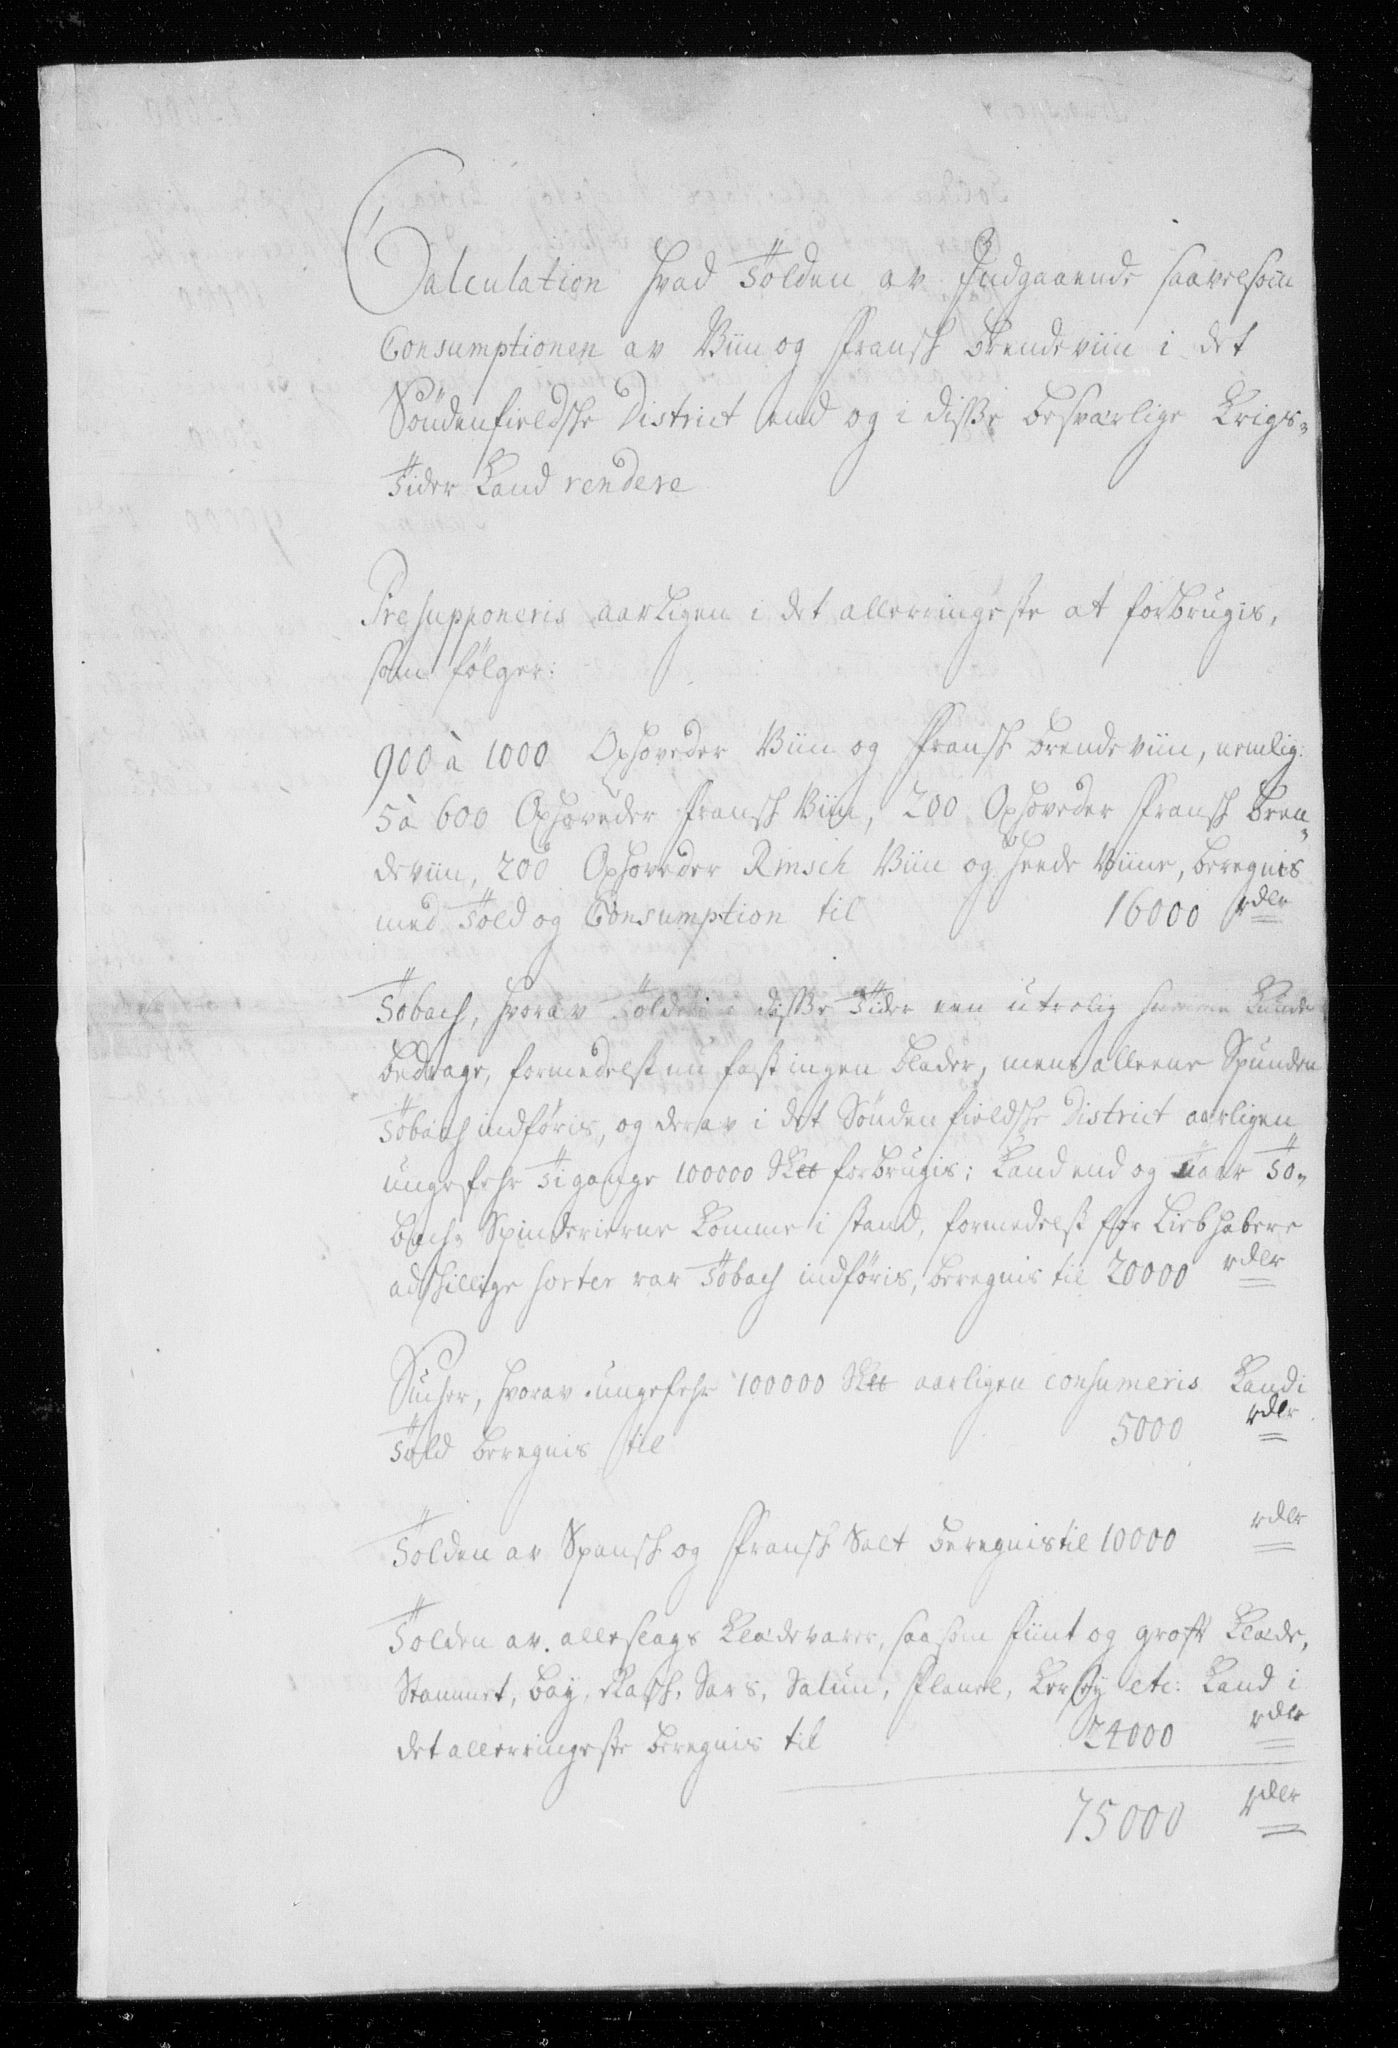 Calculation hvad Tolden av Indgaaende saavelsom
Consumptionen av Viin og Fransk brendeviin i det
Söndenfieldske District end og i disse besværlige Krigs-
Tider kand rendere
Presupponeris aarligen i det allerringeste at forbrugis,
som fölger:
900 à 1000 Oxhoveder Viin og Fransk brendeviin, nemlig:
5 à 600 Oxhoveder Fransk Viin, 200 Oxhoveder Fransk bren-
deviin, 200 Oxhoveder Rinsch Viin og heede Viine, beregnis
med Told og Consumption til 16000 rdlr
Tobach, hvorav Tolden i disse Tider een utrolig summa kunde
bedrage, formedelst nu fast ingen blader, mens alleene Spunden
Tobach indföris, og derav i det Söndenfieldske District aarligen
ungefehr Ti gange 100000 Skll forbrugis; kand end og naar To-
bachs Spinderierne komme i stand, formedelst for Liebhabere
adskillige sorter rar Tobach indföris, beregnis til 20000 rdlr
Sucher, hvorav ungefehr 100000 Skll aarligen consumeris kand i
Told beregnis til 5000 rdlr
Tolden av Spansk og Fransk Salt beregnis til 10000 rdlr
Tolden av alleslags Klædevarer, saasom fiint og groft Klæde,
Stammet, bay, Rask, Sars, Salun, Flanel, Kersey etc: kand i
det allerringeste beregnis til 24000 rdlr
75000 rdlr